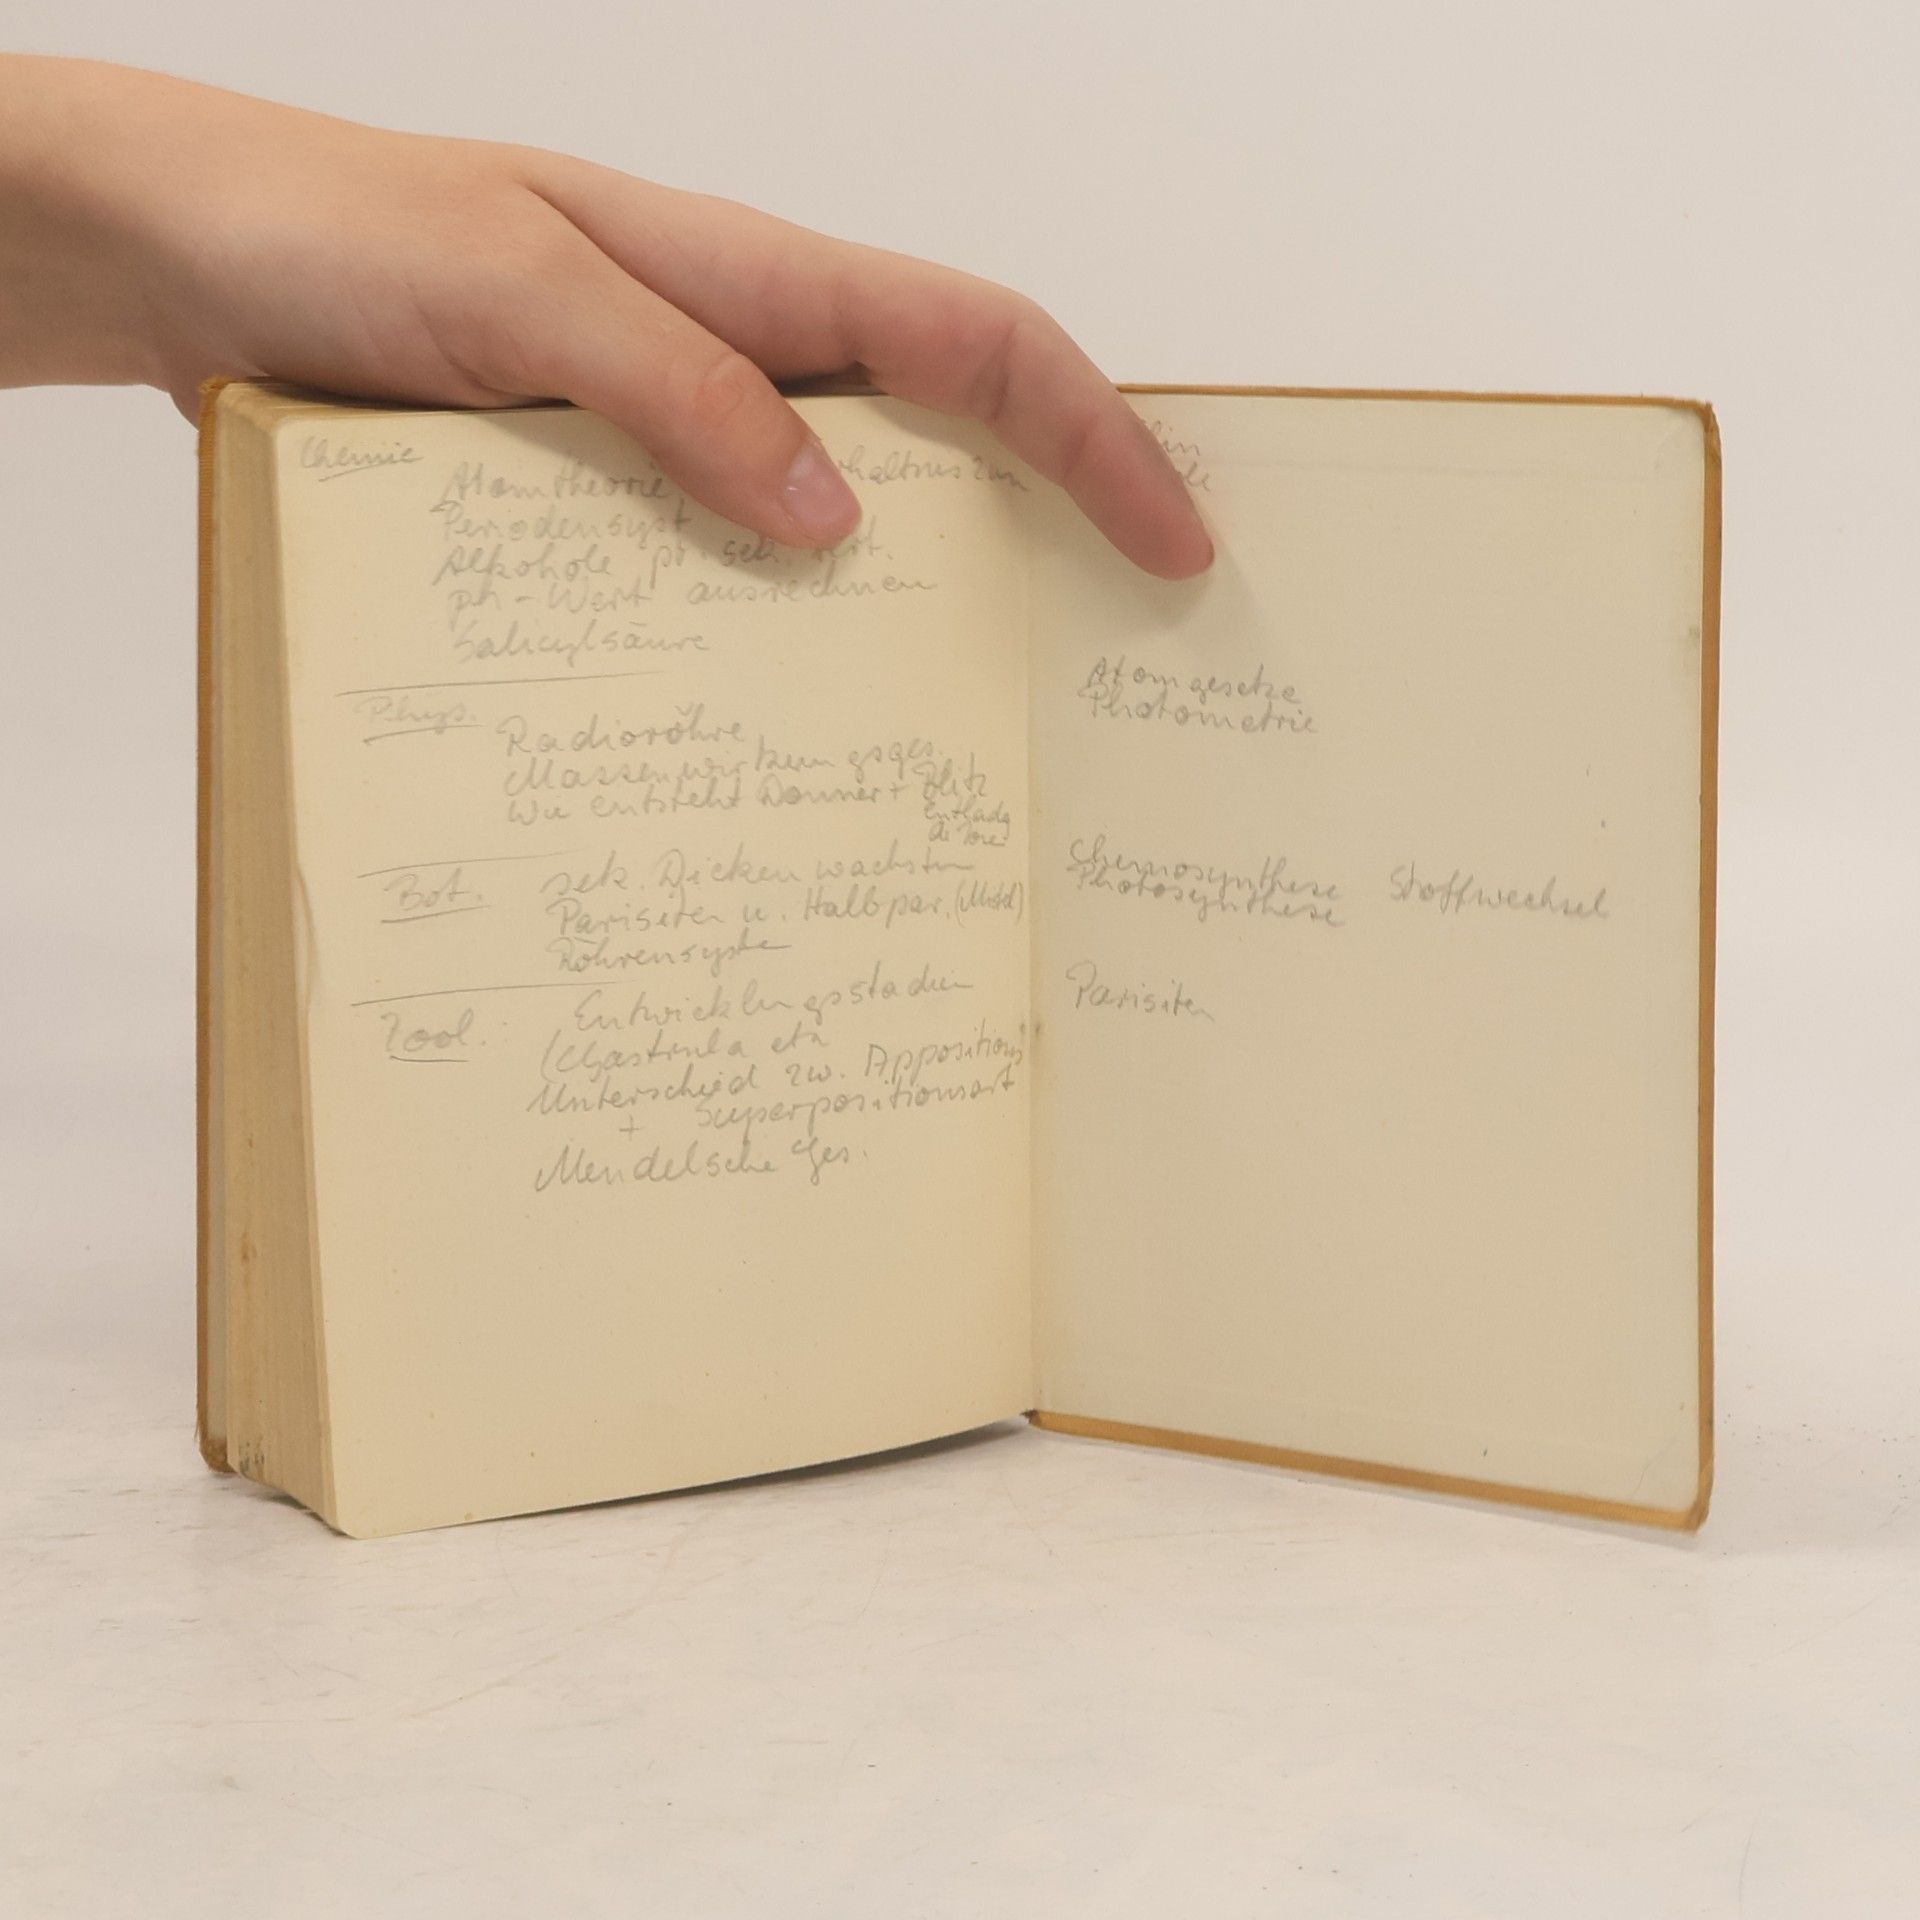 Chemie
Atomtheorie
Periodensyst
Alkohole pr. sek. tert.
pH-Wert ausrechnen
Salicylsäure
Phys.
Radioröhre
Massenwirkungsges.
Wie entsteht Donner + Blitz
Entladg
Bot.
sek. Dickenwachstum
Parisiten u. Halbpar. (Mistel)
Röhrensyste
Zool.:
Entwicklungsstadien
(Gastrula etc
Unterschied zw. Appositions
+ Superpositionsart
Mendelsche Ges.
Atomgesetze
Photometrie
Chemosynthese
Photosynthese
Stoffwechsel
Parisiten